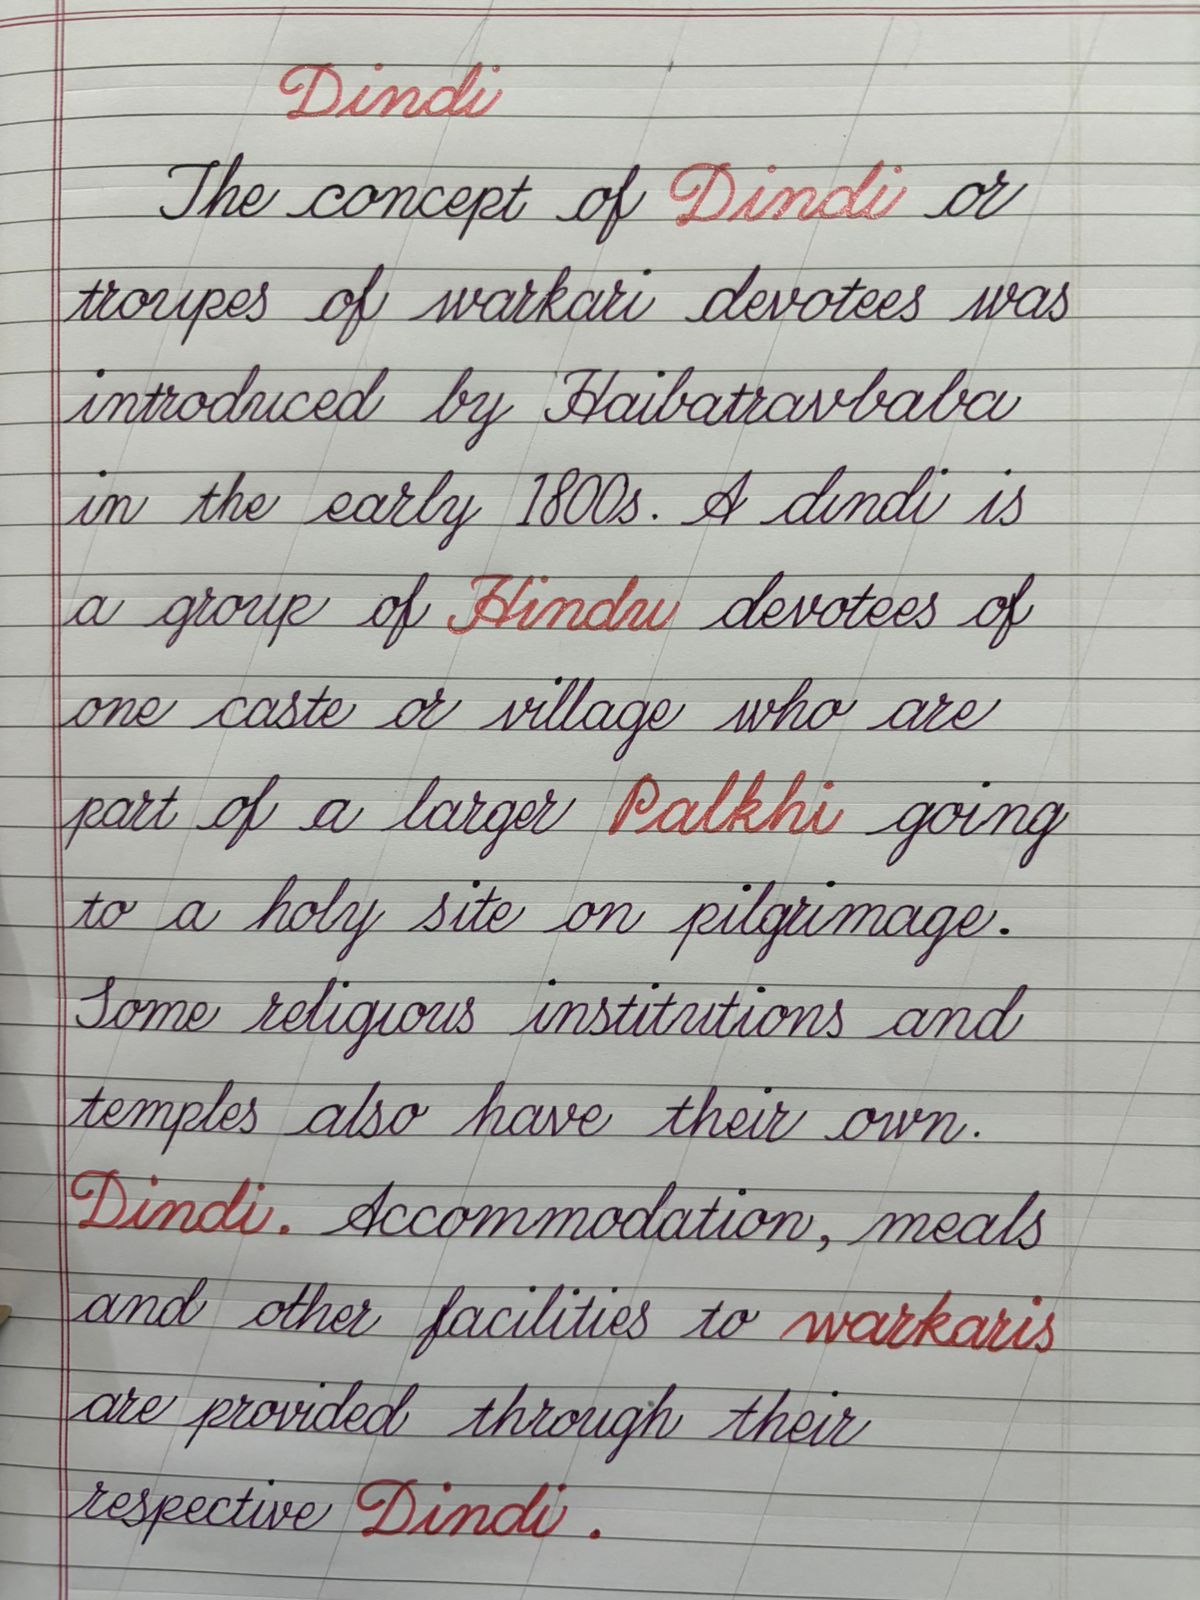 Dindi
The concept of Dindi or
troupes of warkari devotees was
introduced by Haibatravbaba
in the early 1800s. A dindi is
a group of Hindu devotees of
one caste or village who are
part of a larger Palkhi going
to a holy site on pilgrimage.
Some religious institutions and
temples also have their own.
Dindi. Accommodation, meals
and other facilities to warkaris
are provided through their
respective Dindi.